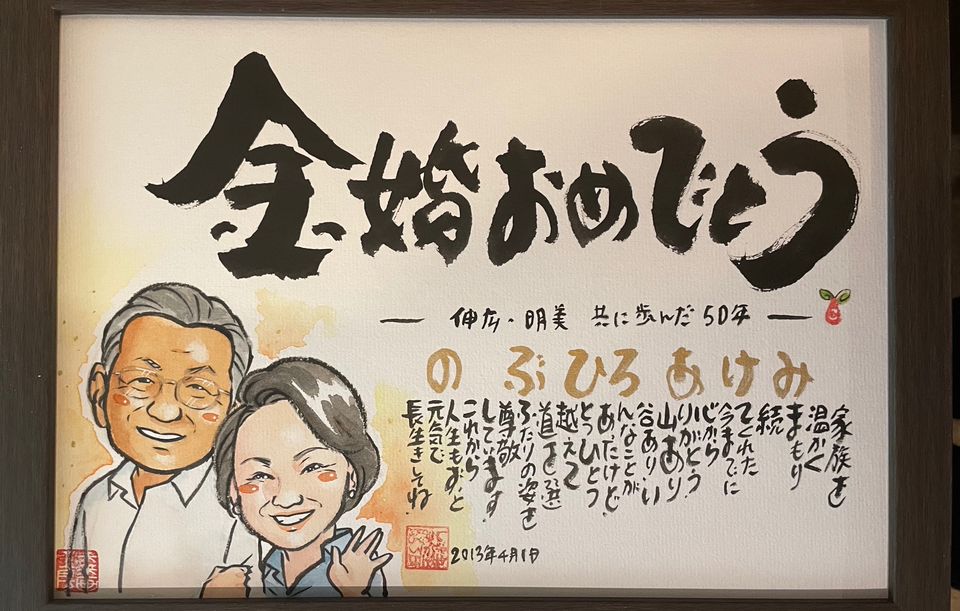 金婚おめでとう
伸広・明美 共に歩んだ50年
のぶひろあけみ
家族を
温かく
まもり
続
てくれた
今までに
心から
りがとう
山あり
谷あり、い
んなことが
あったけど、
とつひとつ
越えて
道を選
ふたりの姿を
尊敬
しています。
これから
人生もずっと
元気で
長生きしてね。
2013年4月1日